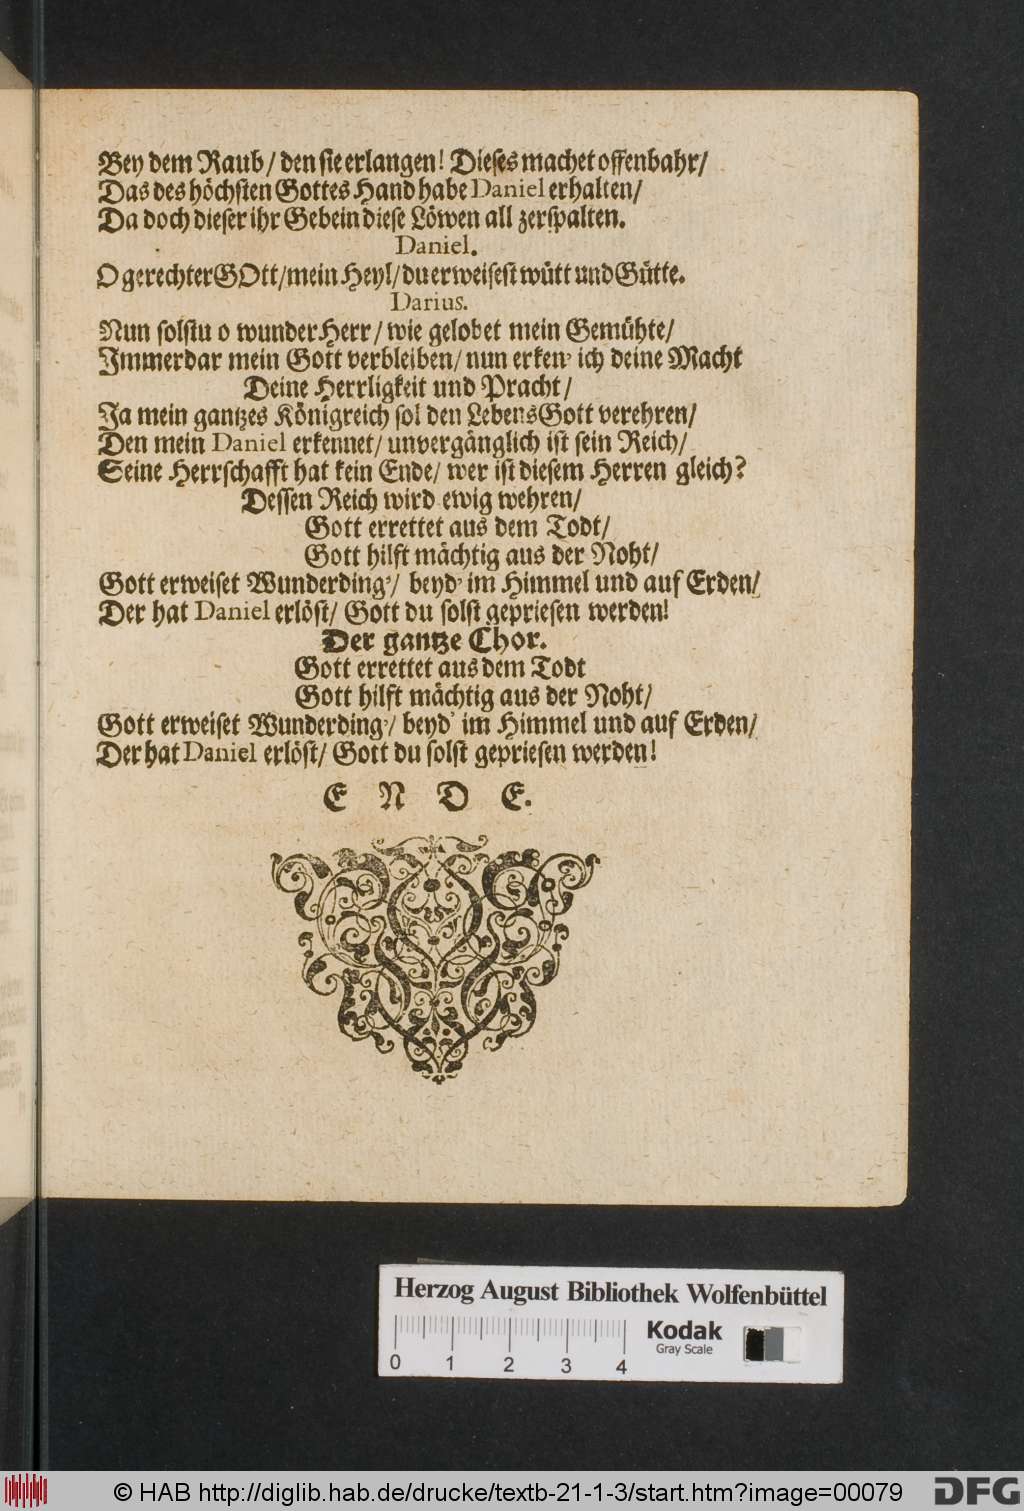 Bey dem Raub/ den sie erlangen! Dieses machet offenbahr/
Das des höchsten Gottes Hand habe Daniel erhalten/
Da doch dieser ihr Gebein diese Löwen all zerspalten.
Daniel.
O gerechter GOtt/ mein Heyl/ du erweisest wütt und Gütte.
Darius.
Nun solstu o wunder Herr/ wie gelobet mein Gemühte/
Immerdar mein Gott verbleiben/ nun erken' ich deine Macht
Deine Herrligkeit und Pracht/
Ja mein gantzes Königreich sol den LebensGott verehren/
Den mein Daniel erkennet/ unvergänglich ist sein Reich/
Seine Herrschafft hat kein Ende/ wer ist diesem Herren gleich?
Dessen Reich wird ewig wehren/
Gott errettet aus dem Todt/
Gott hilft mächtig aus der Noht/
Gott erweiset Wunderding'/ beyd' im Himmel und auf Erden/
Der hat Daniel erlöst/ Gott du solst gepriesen werden!
Der gantze Chor.
Gott errettet aus dem Todt
Gott hilft mächtig aus der Noht/
Gott erweiset Wunderding'/ beyd' im Himmel und auf Erden/
Der hat Daniel erlöst/ Gott du solst gepriesen werden!
E N D E.
Herzog August Bibliothek Wolfenbüttel
0 1 2 3 4
Kodak
Gray Scale
© HAB http://diglib.hab.de/drucke/textb-21-1-3/start.htm?image=00079
DFG